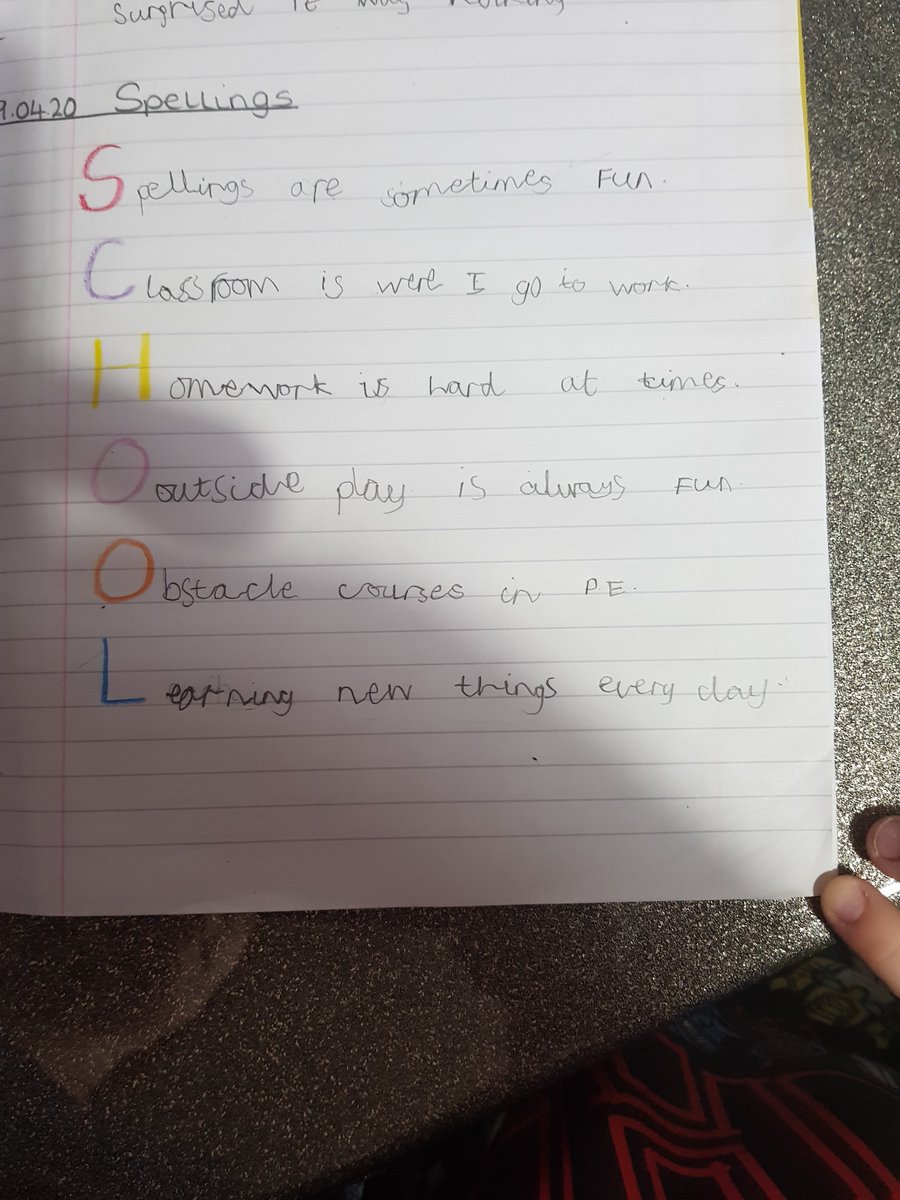 surprised it
9.04.20 Spellings
Spellings are sometimes Fun.
Classroom is were I go to work.
Homework is hard at times.
Ooutside play is always Fun.
Obstacle courses in P.E.
Learning new things every day.